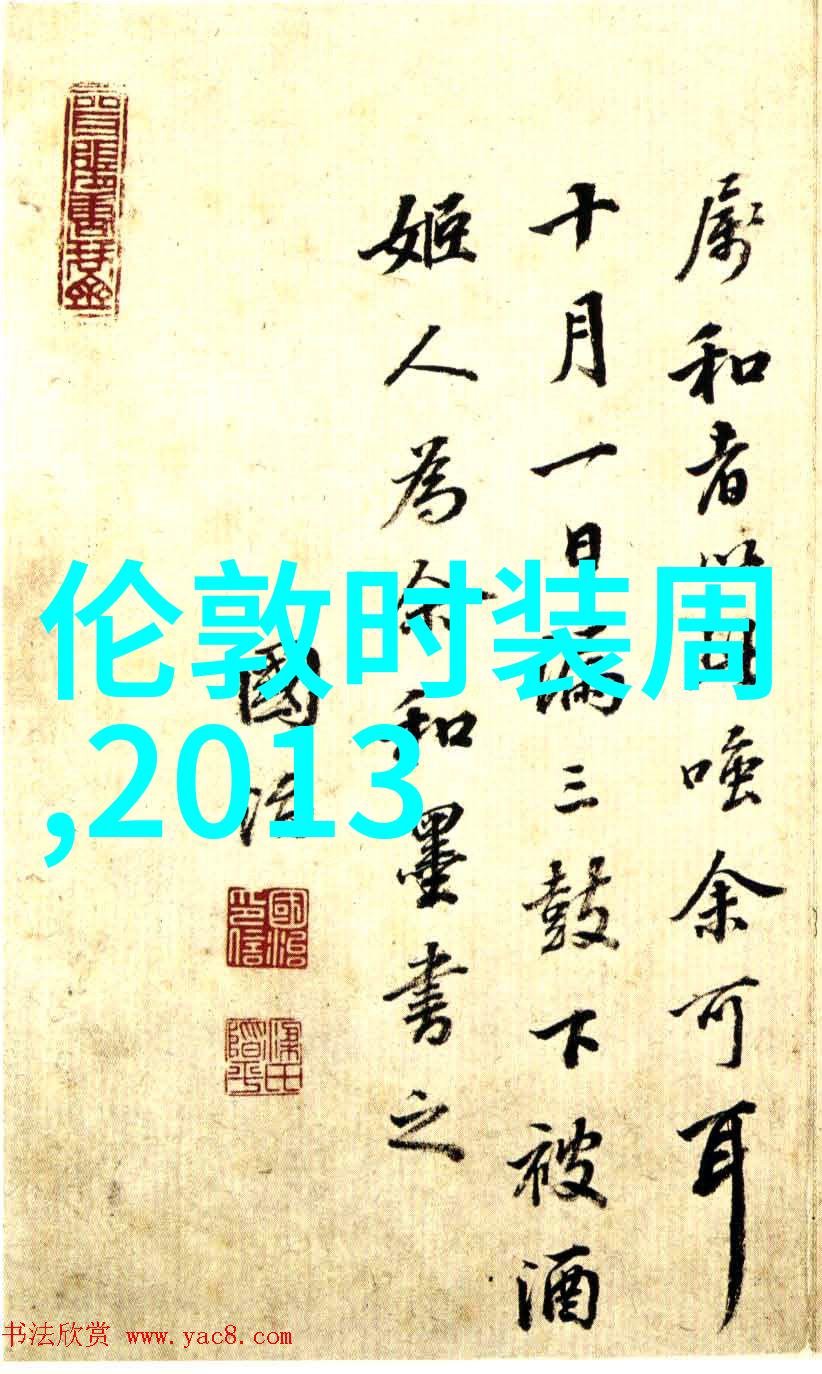 和者
唾余可耳
十月一日漏三鼓下被酒
姬人為余和墨書之
國治
國治印信
伦敦时装周
,2013
书法欣赏 www.yac8.com